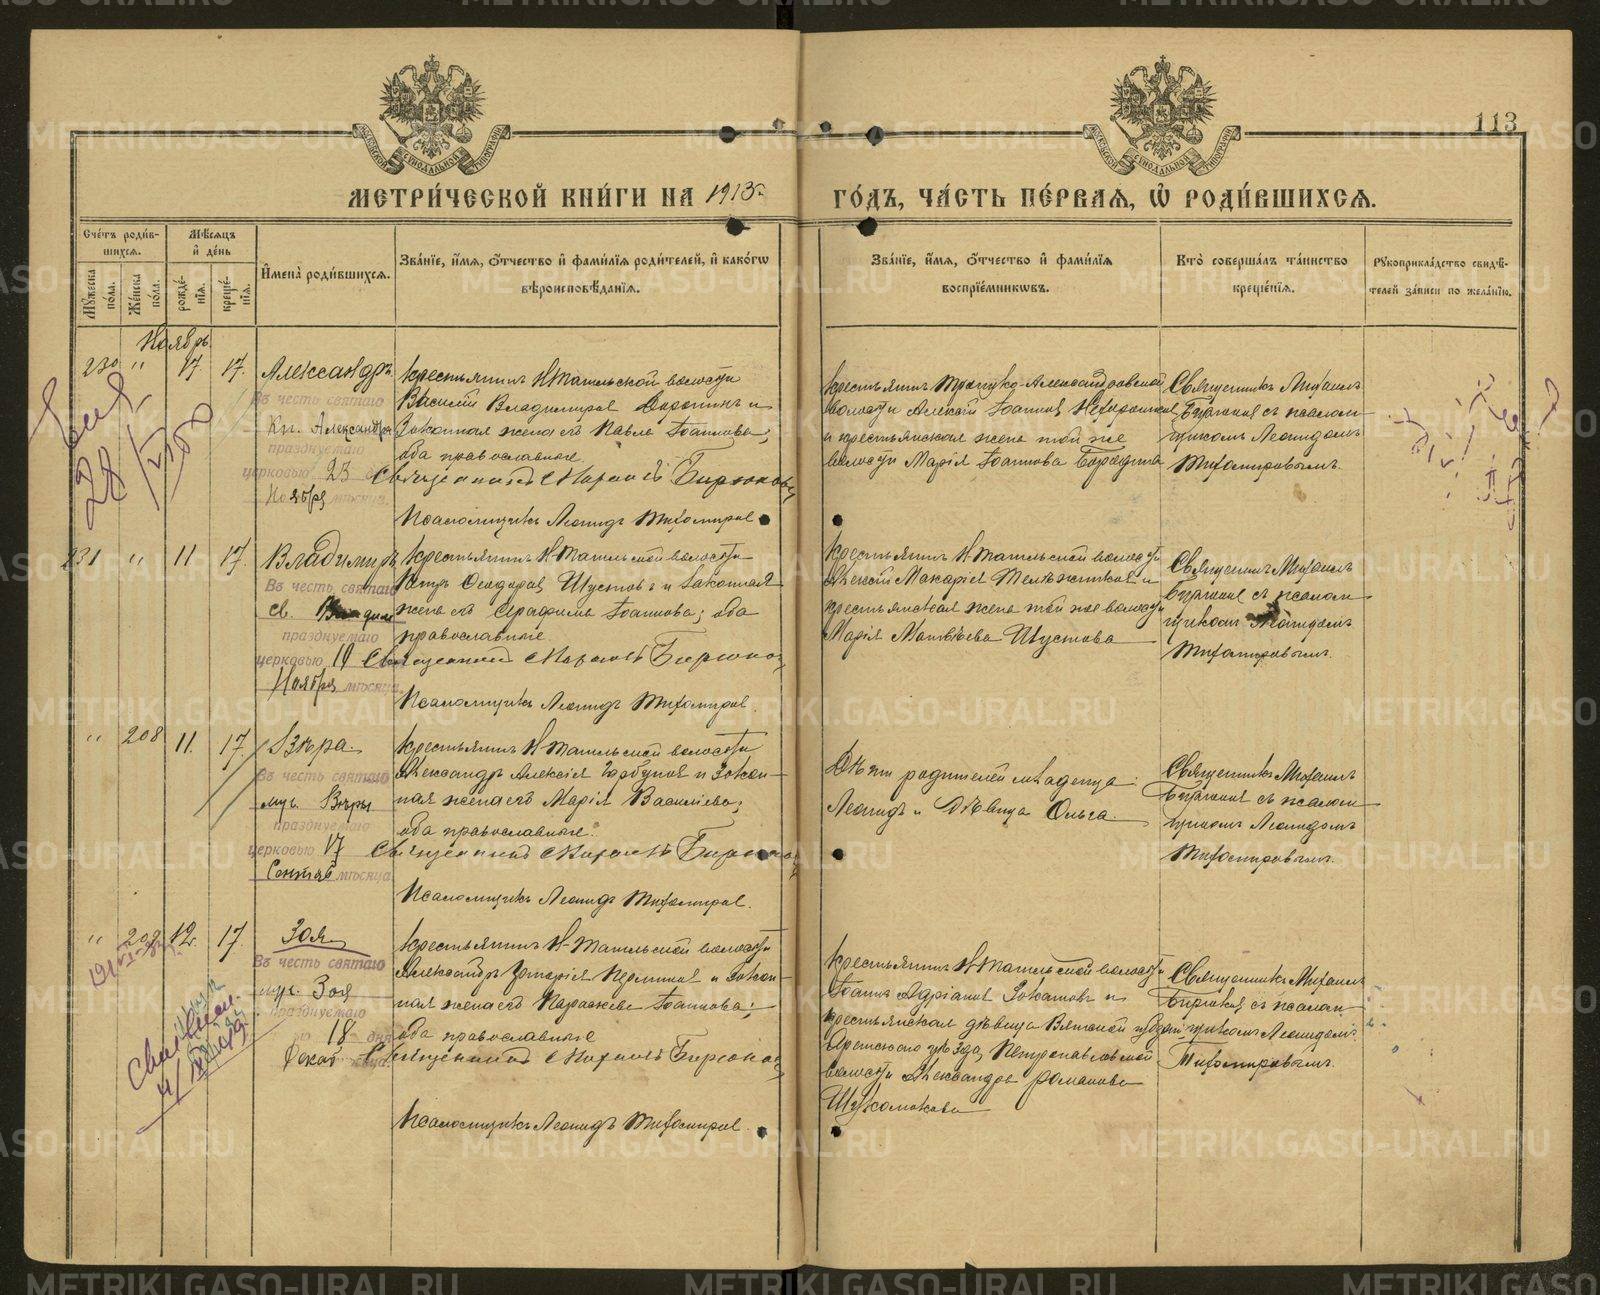 113
МЕТРИ́ЧЕСКОЙ КНИ́ГИ НА 1913 г.
ГО́ДЪ, ЧА́СТЬ ПЕ́РВАЯ, Ѡ РОДИ́ВШИХСЯ.
Сче́тъ роди́в-
шихся.
Мѣ́сяцъ
и де́нь
Му́жеска
пола.
Же́нска
по́ла.
рожде́-
нія.
креще́-
нія.
И҆мена̀ роди́вшихся.
Зва́ніе, и҆́мя, ѻ҆́тчество и҆ фами́лія роди́телей, и҆ како́гѡ
вѣроисповѣ́данія.
Зва́ніе, и҆́мя, ѻ҆́тчество и҆ фами́лія
воспріе́мниковъ.
Кто̀ соверша́лъ та́инство
креще́нія.
Рꙋкоприкла́дство свидѣ́-
телей за́писи по жела́нію.
Ноябрь
230 " 17. 17. Александръ
Въ честь святаго
Кн. Александра
празднуемаго
церковью 23 дня
Ноября мѣсяца.
Крестьянинъ Н-Тагильской волости
Василій Владиміров и
законная жена его Павла Іоаннова;
оба православные.
Священникъ Михаилъ Бирюковъ
Псаломщикъ Леонидъ Тихомировъ
Крестьянинъ Троицко-Александровской
волости Алексій Іоаннов
и крестьянская жена той же
волости Марія Іоаннова Бородина
Священникъ Михаилъ
Бирюковъ съ псалом-
щикомъ Леонидомъ
Тихомировымъ.
231 " 11 17. Владимиръ
Въ честь святаго
св. Владим
празднуемаго
церковью 19
Ноября мѣсяца.
Крестьянинъ Н-Тагильской волости
Петръ Ѳеодоров Шустовъ и законная
жена его Серафима Іоаннова; оба
православные.
Священникъ Михаилъ Бирюков
Псаломщикъ Леонидъ Тихомиров.
Крестьянинъ Н-Тагильской волости
Алексій Макаріев и
крестьянская жена той же волости
Марія Матвѣева Шустова
Священникъ Михаилъ
Бирюков съ псалом-
щиком Леонидомъ
Тихомировымъ.
" 208 11. 17. Вѣра.
Въ честь святаго
муч. Вѣры
празднуемаго
церковью 17
Сентяб мѣсяца
Крестьянинъ Н-Тагильской волости
Александръ Алексіев Горбунов и закон-
ная жена его Марія Василіева;
оба православные.
Священникъ Михаилъ Бирюков
Псаломщикъ Леонидъ Тихомиров.
Дѣти родителей младенца:
Леонидъ и дѣвица Ольга.
Священникъ Михаилъ
Бирюков съ псалом-
щиком Леонидомъ
Тихомировымъ.
" 209 12. 17. Зоя
Въ честь святаго
муч. Зоя
празднуемаго
18 дня
Декаб мѣсяца
Крестьянинъ Н-Тагильской волости
Александръ Захаріев Перминов и закон-
ная жена его Параскева Іоаннова;
оба православные
Священникъ Михаилъ Бирюков
Псаломщикъ Леонидъ Тихомиров.
Крестьянинъ Н-Тагильской волости
Іоаннъ Адріанов и
крестьянская дѣвица Вятской губерніи
уѣзда, Петропавловской
волости Александра Романова
Священникъ Михаилъ
Бирюков съ псалом-
щикомъ Леонидомъ
Тихомировымъ.
METRIKI.GASO-URAL.RU